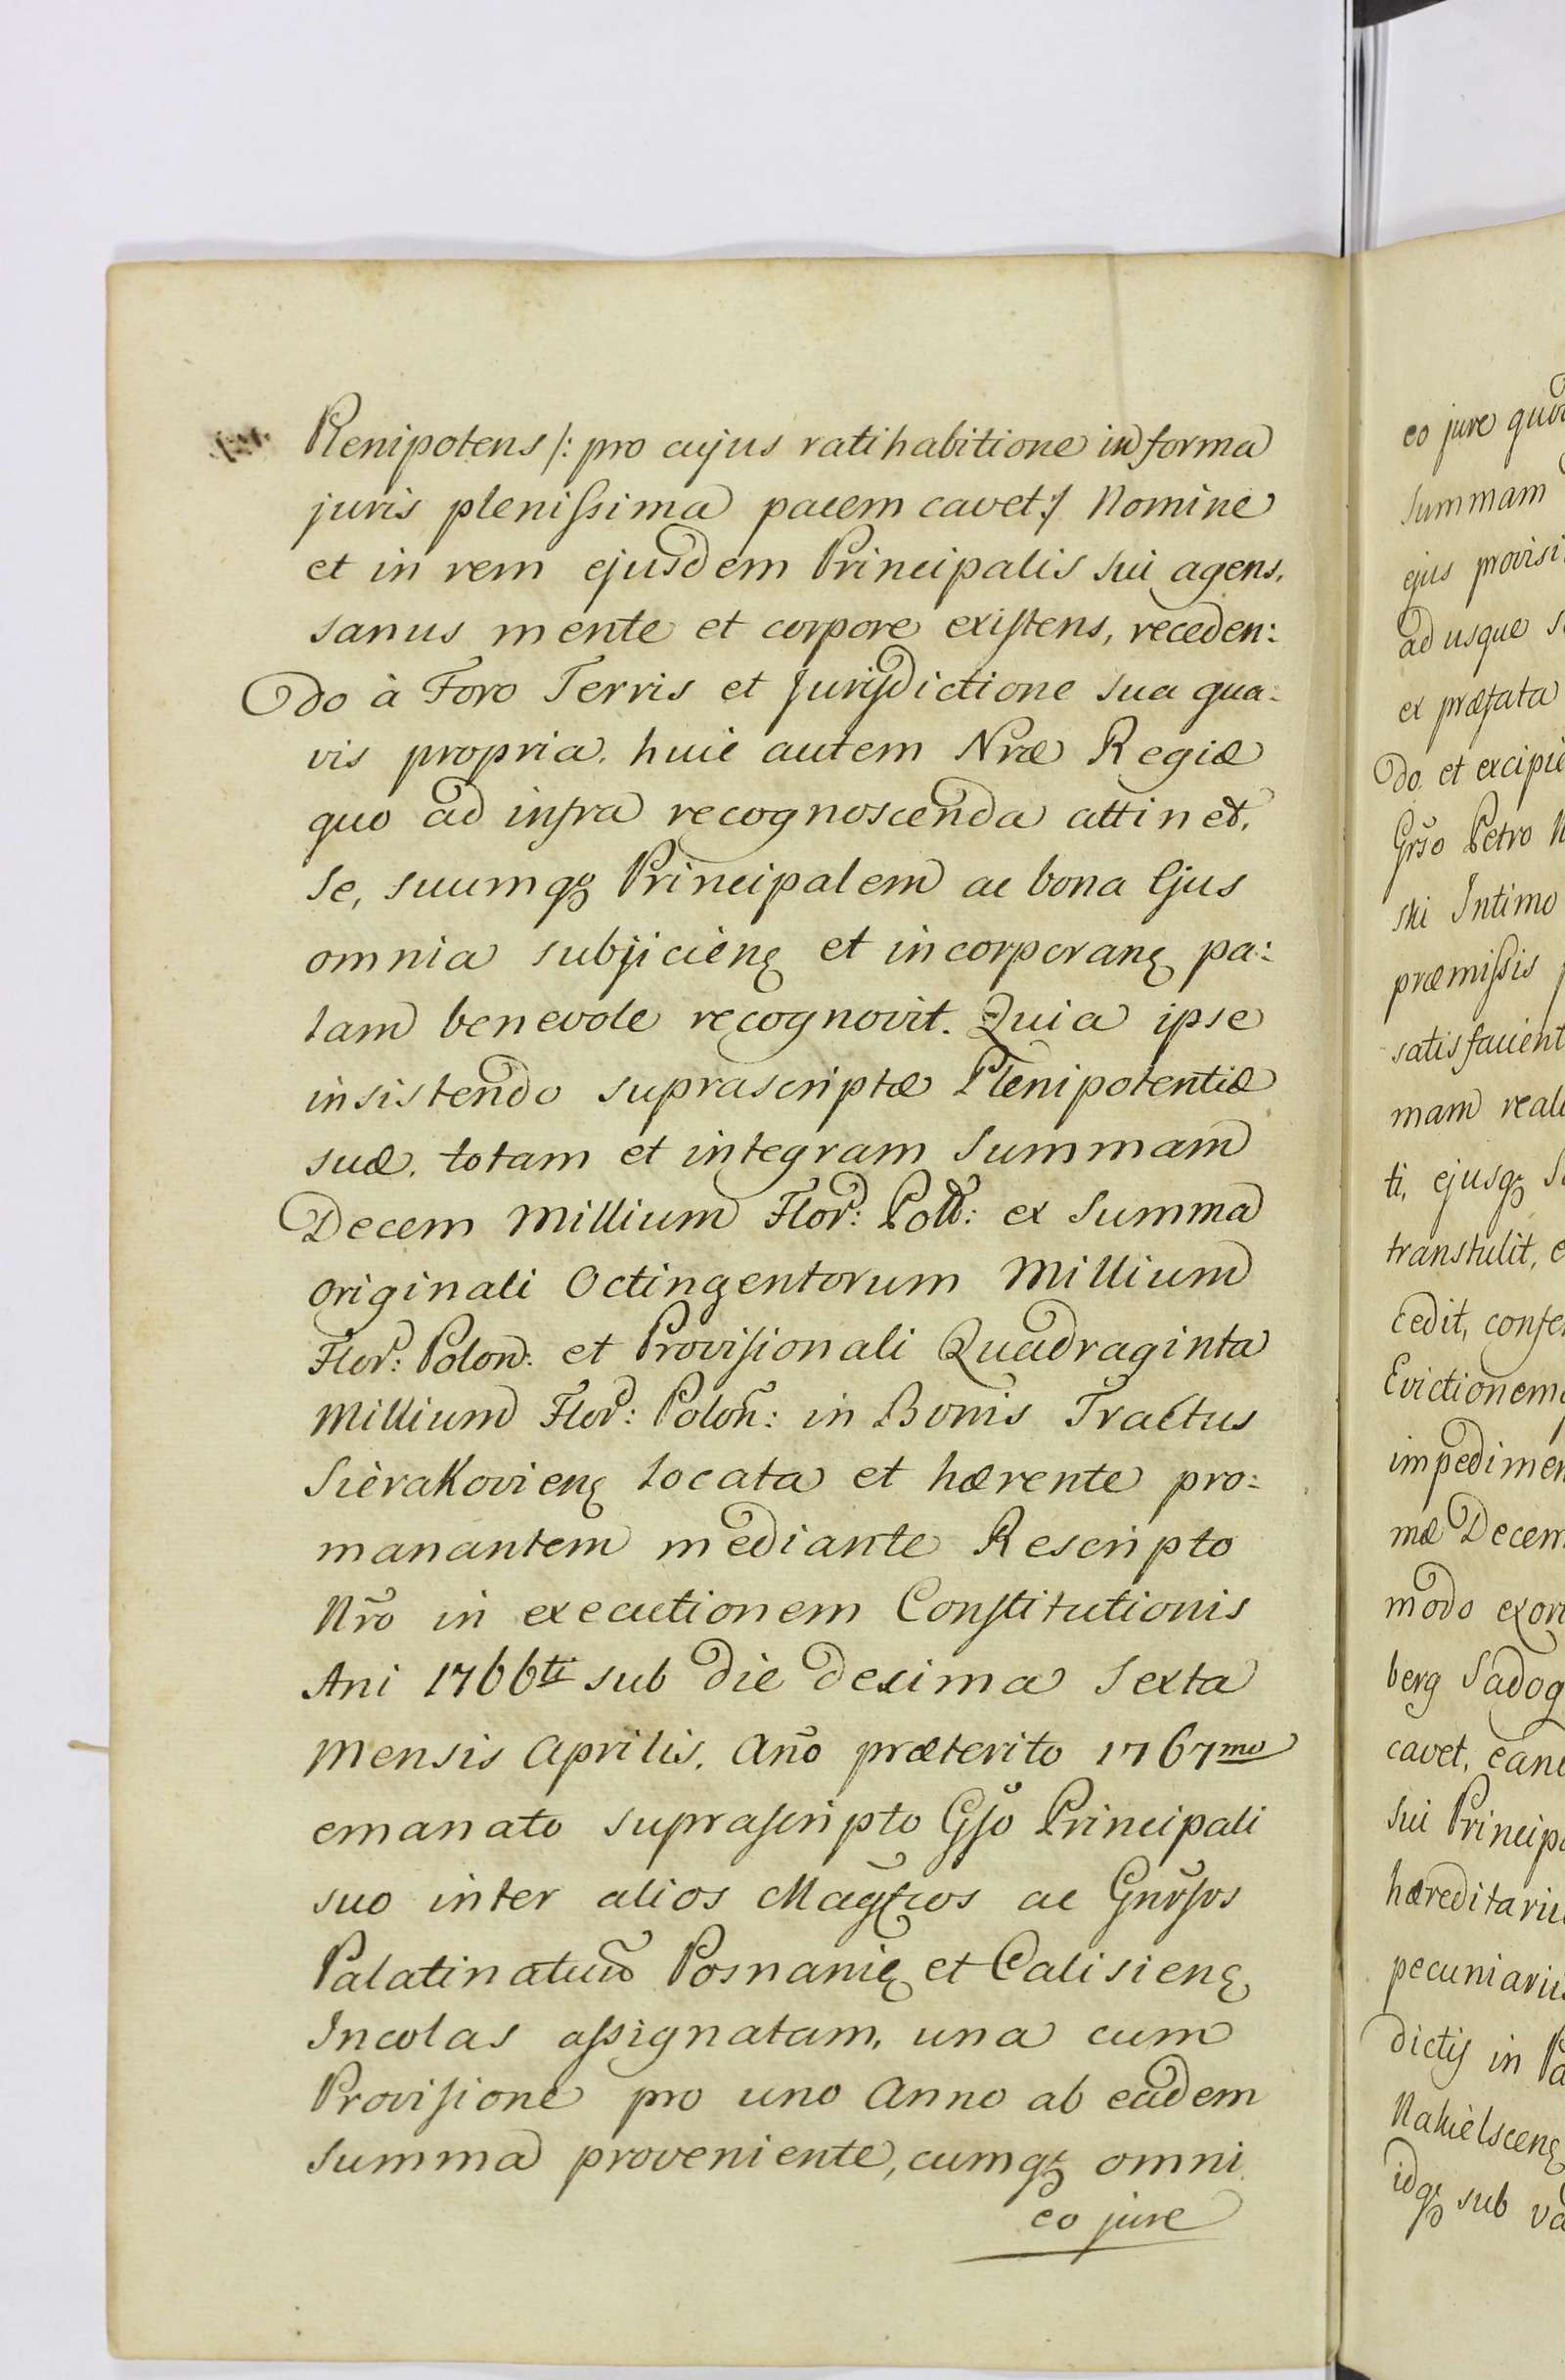 Plenipotens /: pro cujus ratihabitione in forma
juris plenissima pacem cavet :/ Nomine
et in rem ejusdem Principalis sui agens,
sanus mente et corpore existens, receden:
do à Foro Terris et Jurisdictione sua qua:
vis propria, huic autem Nræ Regiæ
quo ad infra recognoscenda attinet,
se, suumqꝫ Principalem ac bona Ejus
omnia subjicienꝭ et incorporanꝭ pa:
lam benevole recognovit. Quia ipse
insistendo suprascriptæ Plenipotentiæ
suæ, totam et integram Summam
Decem Millium Flor: Poll: ex Summa
Originali Octingentorum Millium
Flor: Polon: et Provisionali Quadraginta
Millium Flor: Poloñ: in Bonis Tractus
Sièrakovienꝭ locata et hærente pro:
manantem mediante Rescripto
Nr̃o in executionem Constitutionis
Ani 1766ti sub die decima sexta
Mensis Aprilis, Año præterito 1767mo
emanato suprascripto Gso Principali
suo inter alios Magcos ac Gnrsos
Palatinatuum Posnaniꝭ et Calisienꝭ
Incolas assignatam, una cum
Provisione pro uno Anno ab eadem
Summa proveniente, cumqꝫ omni
eo jure
eo jure
Summam
ejus provisi
ad usque
ex præfata
do et excipie
Gr̃so Petro
ski Intimo
præmissis
satisfacient
mam reali
ti, ejusqꝫ
transtulit,
cedit, confe
Evictionem
impedimen
mæ Decem
modo exori
berg Sadog
cavet, eam
sui Principa
hæreditarii
pecuniarii
dictis in
Nakièlscenꝭ
idqꝫ sub